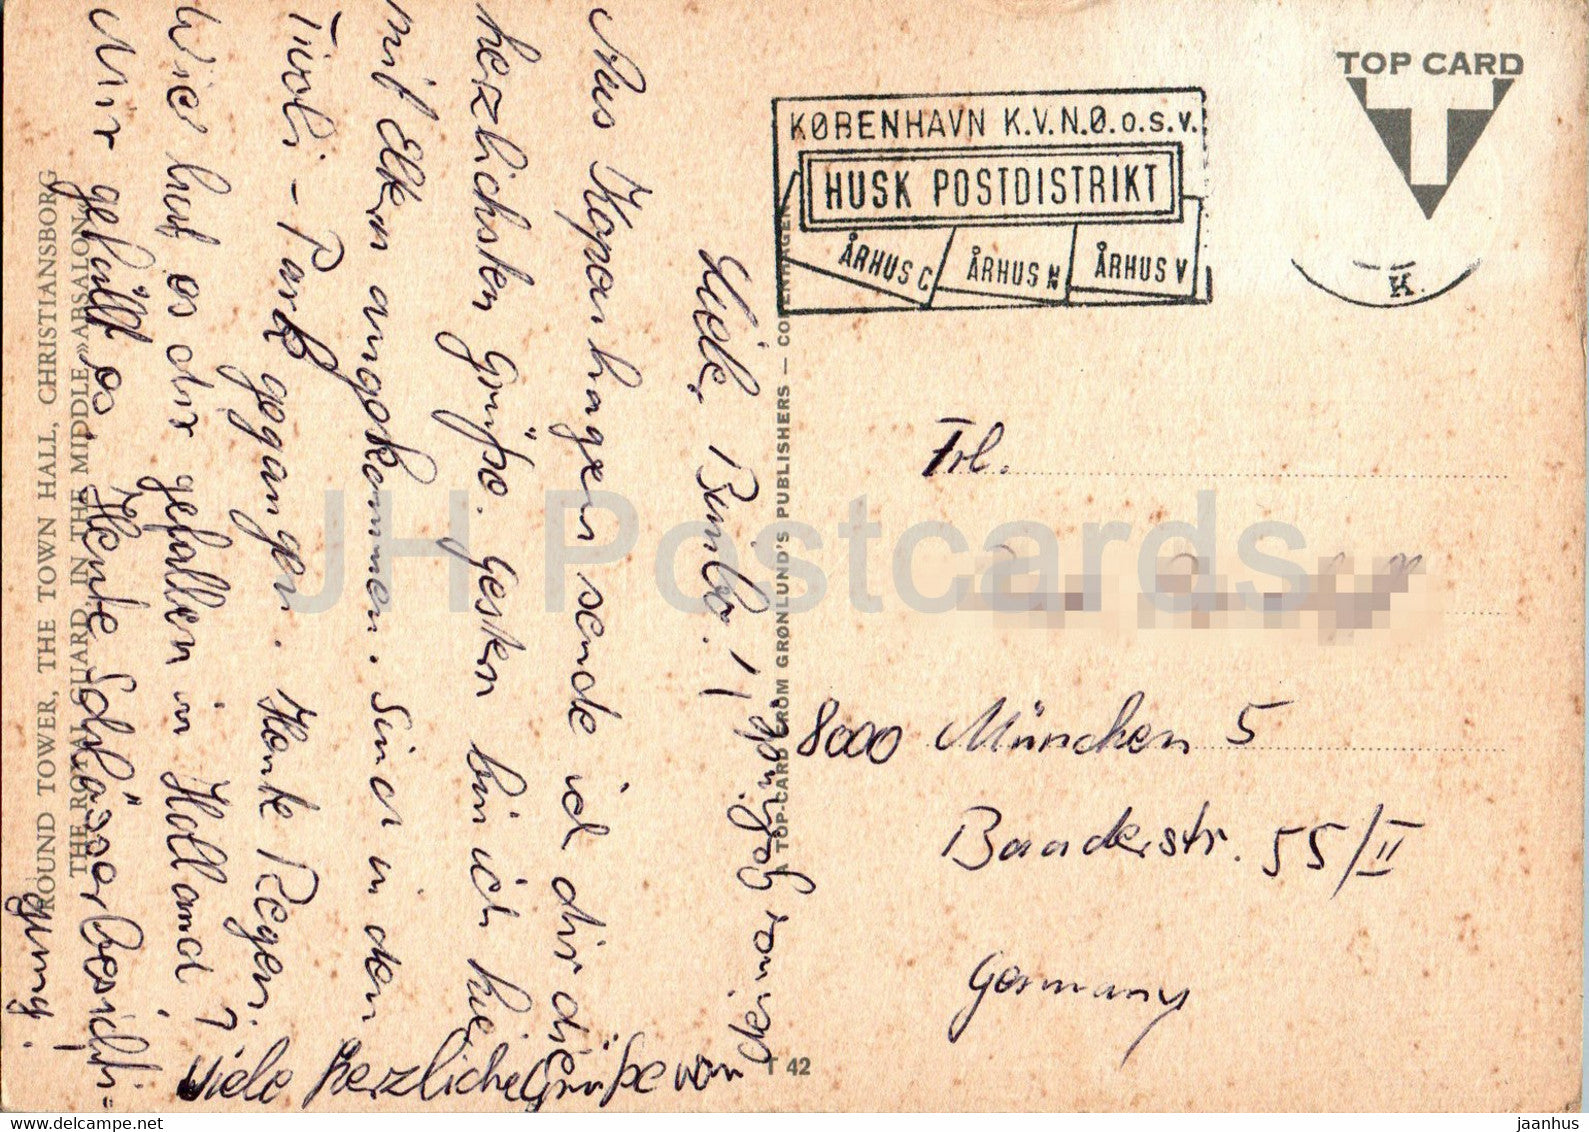 TOP CARD
KØBENHAVN K.V.N.Ø.o.s.v.
HUSK POSTDISTRIKT
ÅRHUS C ÅRHUS N ÅRHUS V
K.
Frl.
8000 München 5
Baaderstr. 55/II
Germany
Liebe Bimbo!
Aus Kopenhagen sende ich dir die
herzlichsten Grüße. Gestern bin ich hier
mit Elken angekommen. Sind in den
Tivoli-Park gegangen. Heute Regen.
Wie hat es dir gefallen in Holland?
Mir gefällt es. Heute Schlösserbesichti=
gung.
Viele herzliche Grüße von
deiner
A TOP-CARD FROM GRØNLUND'S PUBLISHERS — COPENHAGEN
T 42
ROUND TOWER, THE TOWN HALL, CHRISTIANSBORG
THE ROYAL GUARD, IN THE MIDDLE »ABSALON«
JH Postcards
www.delcampe.net
jaanhus